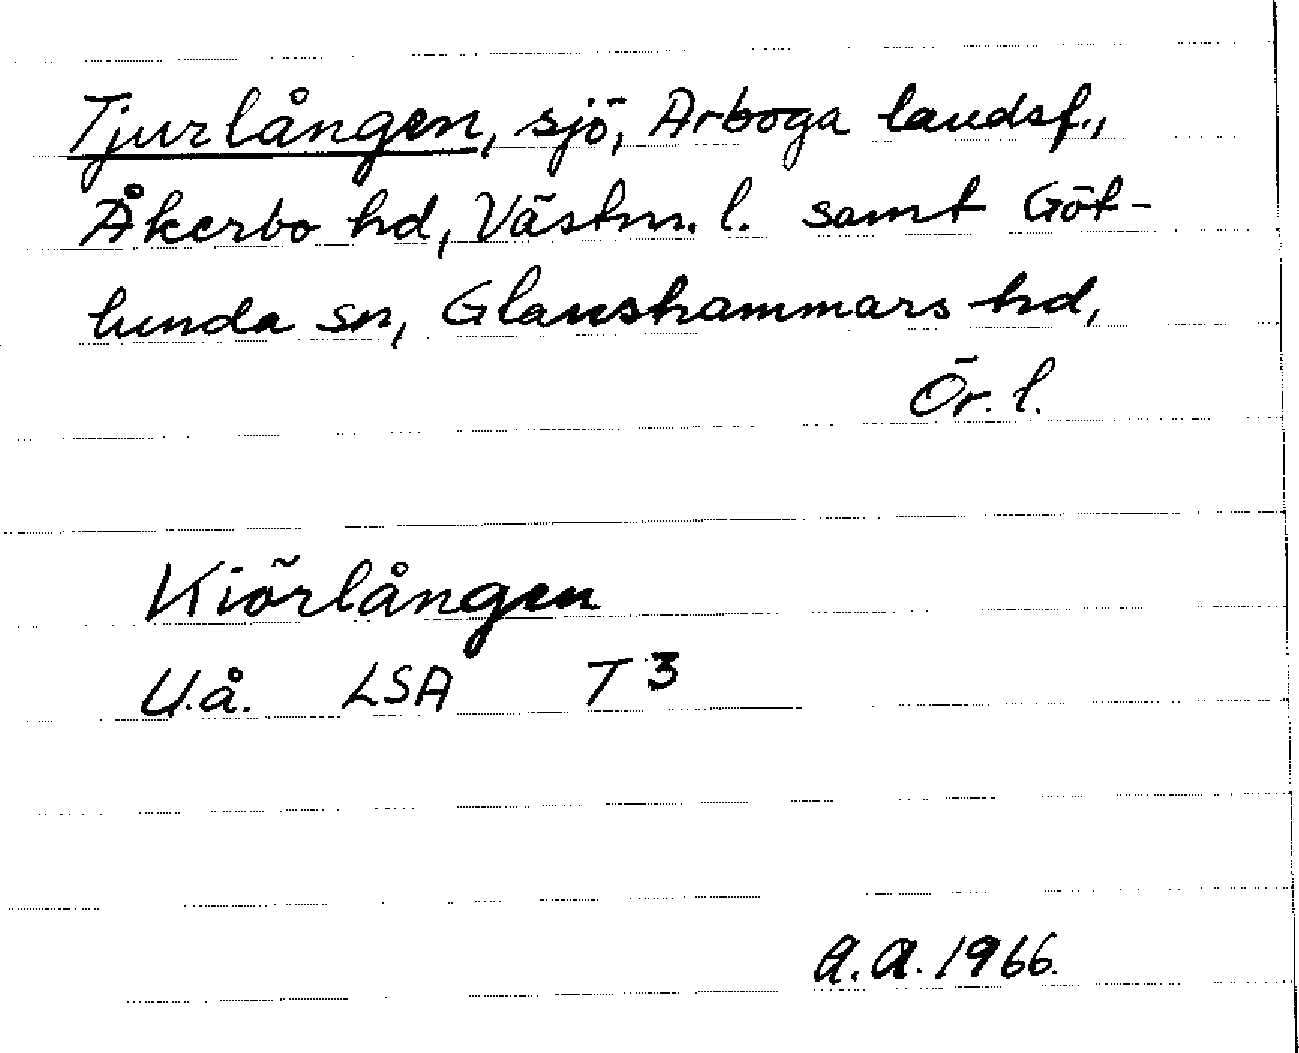 Tjurlången, sjö, Arboga landsf.,
Åkerbo hd, Västm. l. samt Göt-
lunda sn, Glanshammars hd,
Ör. l.
Kiörlången
U.å. LSA T 3
A.A. 1966.